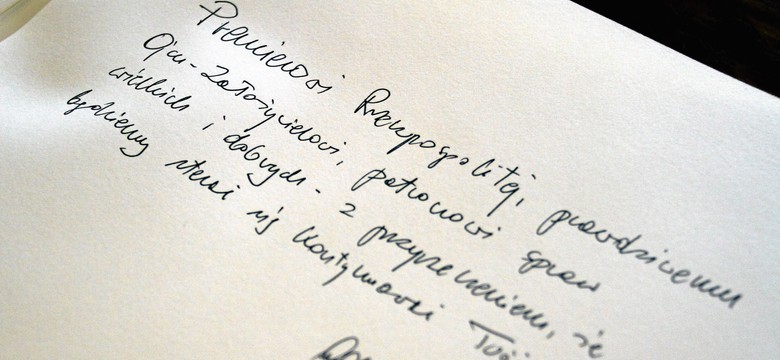 Premierowi Rzeczpospolitej, prawdziwemu
Ojcu-Założycielowi, patronowi spraw
wielkich i dobrych - z przyrzeczeniem, że
będziemy starać się kontynuować